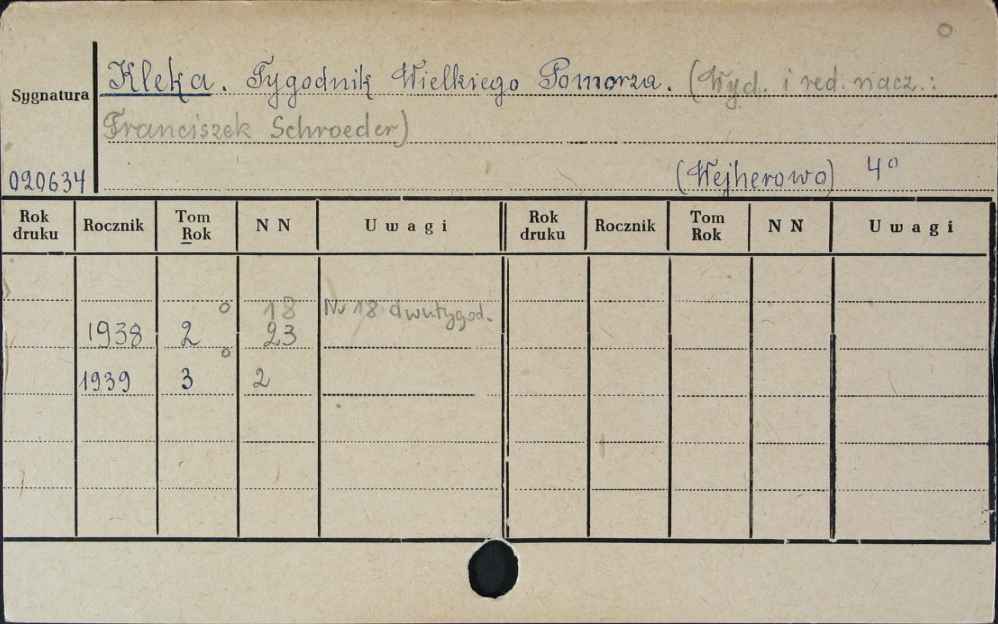 Sygnatura
Kleka. Tygodnik Wielkiego Pomorza. (Wyd. i red. nacz.:
Franciszek Schroeder)
020634 (Wejherowo) 4°
Rok druku Rocznik Tom Rok N N Uwagi Rok druku Rocznik Tom Rok N N Uwagi
18 Nr 18 dwutygod.
1938 2 23
1939 3 2